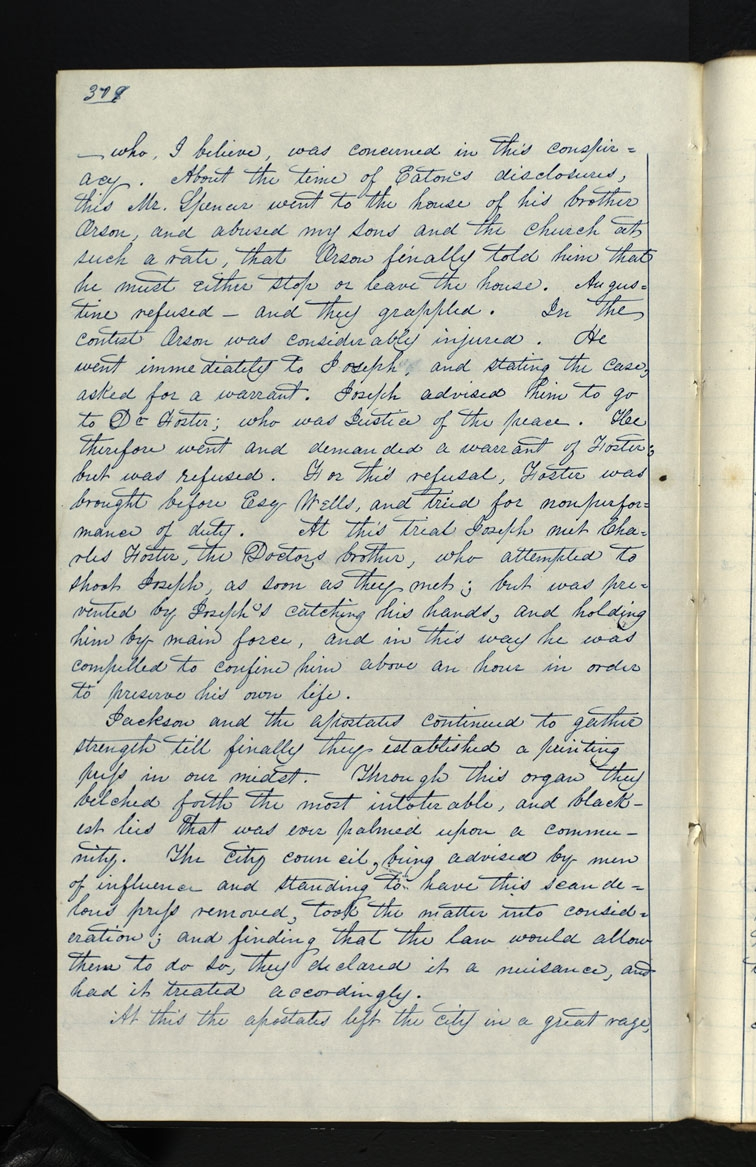 379
— who, I believe, was concerned in this conspir=
acy. About the time of Eaton's disclosures,
this Mr. Spencer went to the house of his brother
Orson, and abused my sons and the church at
such a rate, that Orson finally told him that
he must either stop or leave the house. Augus=
tine refused — and they grappled. In the
contest Orson was considerably injured. He
went immediately to Joseph, and stating the case,
asked for a warrant. Joseph advised him to go
to Dr Foster; who was Justice of the peace. He
therefore went and demanded a warrant of Foster;
but was refused. For this refusal, Foster was
brought before Esq Wells, and tried for nonperfor=
mance of duty. At this trial Joseph met Cha=
rles Foster, the Doctor,s brother, who attempted to
shoot Joseph, as soon as they met; but was pre=
vented by Joseph's catching his hands, and holding
him by main force, and in this way he was
compelled to confine him above an hour in order
to preserve his own life.
Jackson and the apostates continued to gather
strength till finally they established a printing
press in our midst. Through this organ they
belched forth the most intolerable, and black-
est lies that was ever palmed upon a commu-
nity. The city council, being advised by men
of influence and standing to have this scande=
lous press removed, took the matter into consid=
eration; and finding that the law would allow
them to do so, they declared it a nuisance, and
had it treated accordingly.
At this the apostates left the city in a great rage,